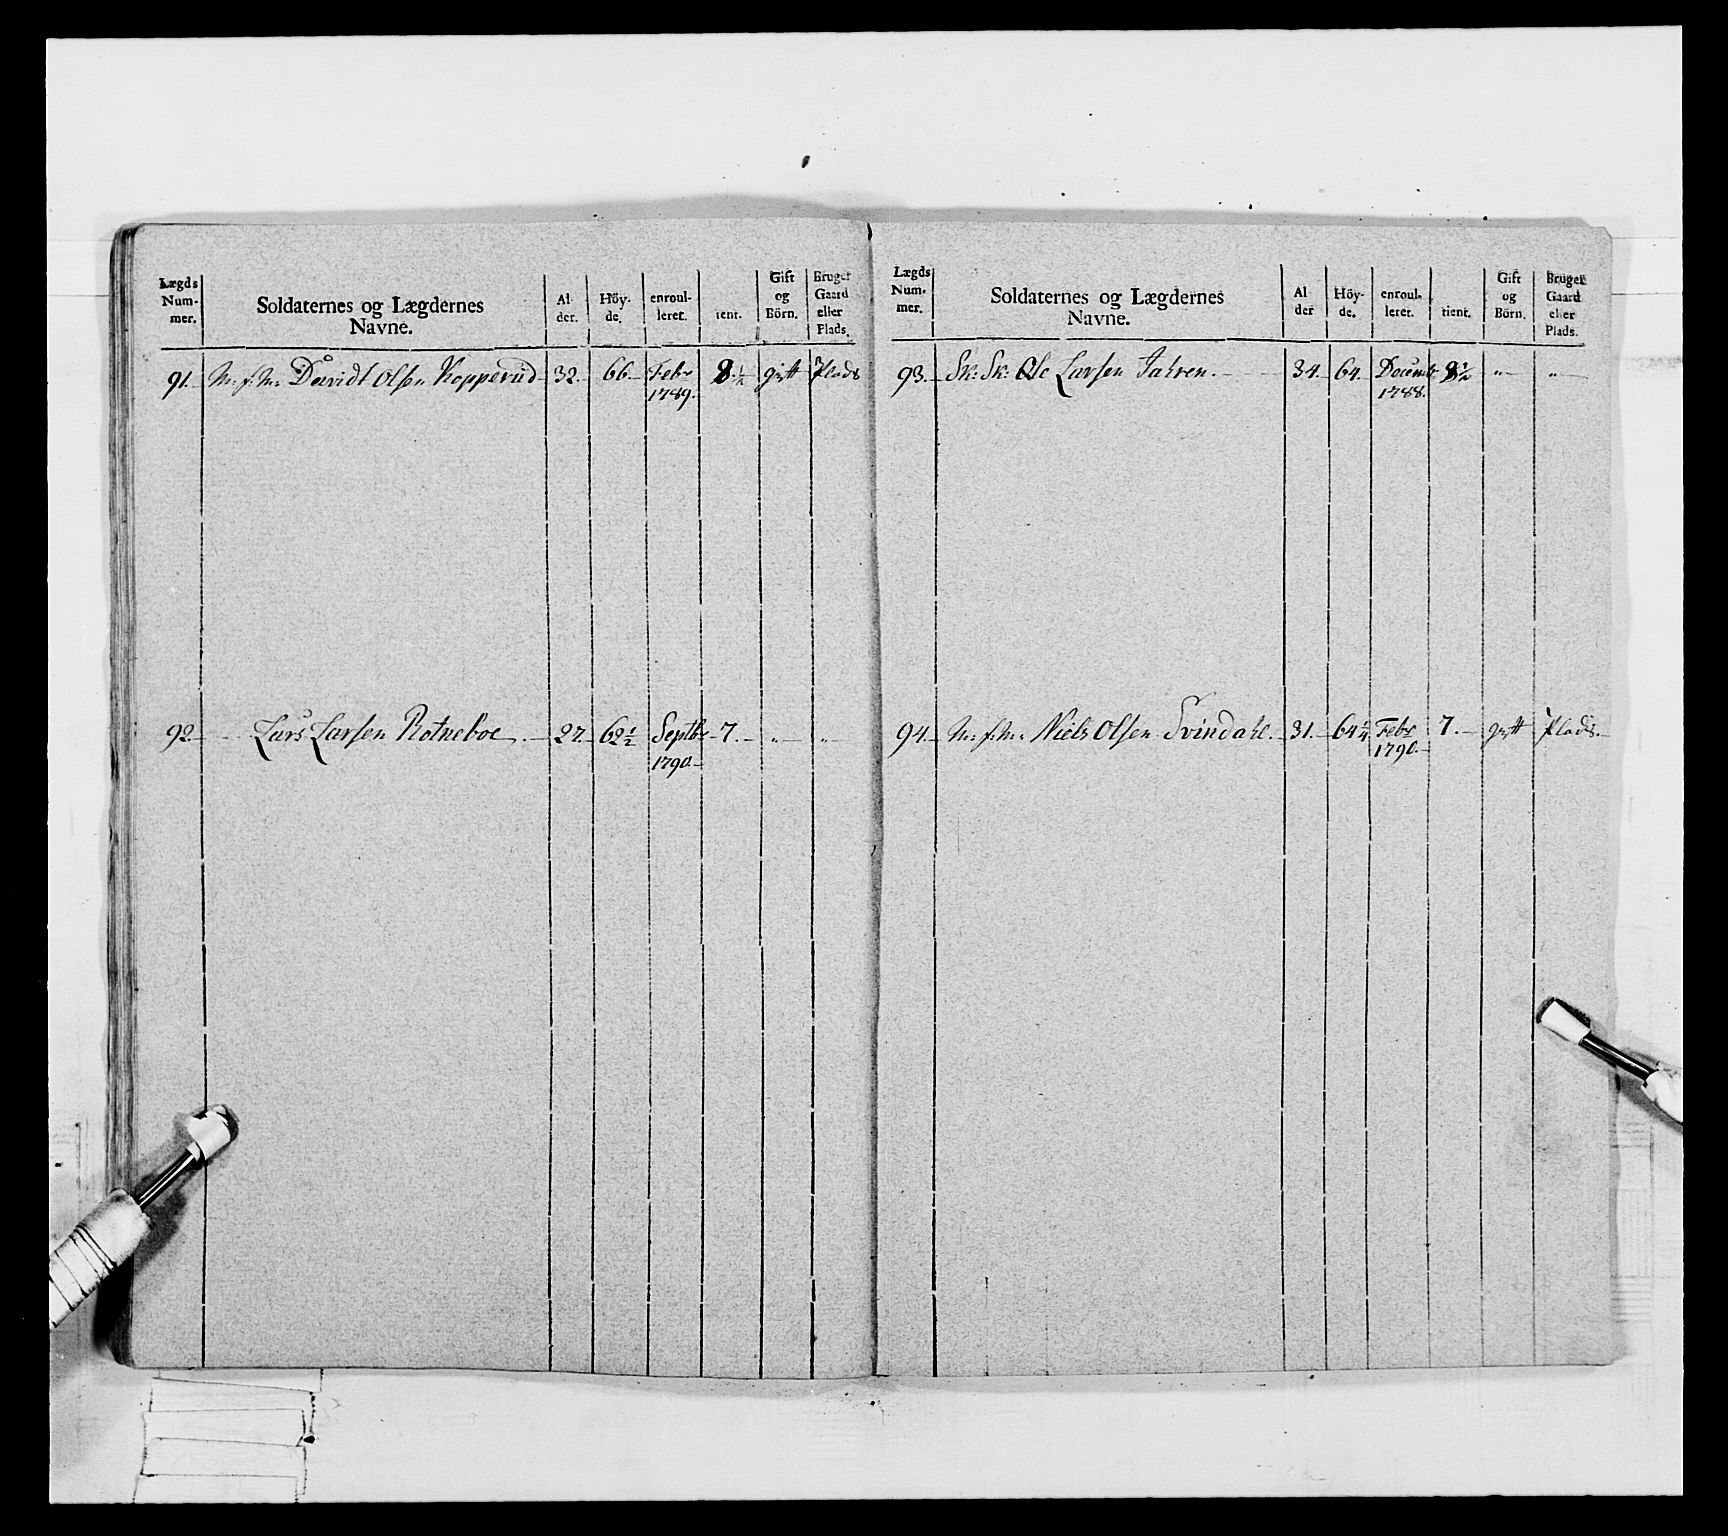 Lægds Num- mer. Soldaternes og Lægdernes Navne. Al der. Höy- de. enroul- leret. tient. Gift og Börn. Bruger Gaard eller Plads.
91. M: f: M: Davidt Olsen Kopperud 32. 66. Febr 8 1/2 gift Plads
1789.
92. Lars Larsen Rotneboe 27. 62 1/2 Septbr 7. " "
1790.
Lægds Num- mer. Soldaternes og Lægdernes Navne. Al der Höy- de. enroul- leret. tient. Gift og Börn. Bruger Gaard eller Plads.
93. Sk: Sk: Ole Larsen Jahren. 34. 64. Decembr 8 1/2 " "
1788.
94. M: f: M: Niels Olsen Svindahl. 31. 64 1/4 Febr 7. gift Plads.
1790.